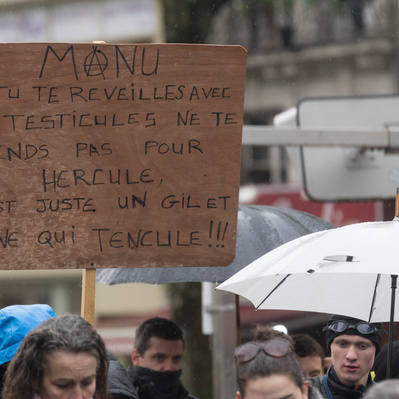 MANU
TU TE REVEILLES AVEC
TESTICULES NE TE
ENDS PAS POUR
HERCULE,
ST JUSTE UN GILET
NE QUI TENCULE!!!